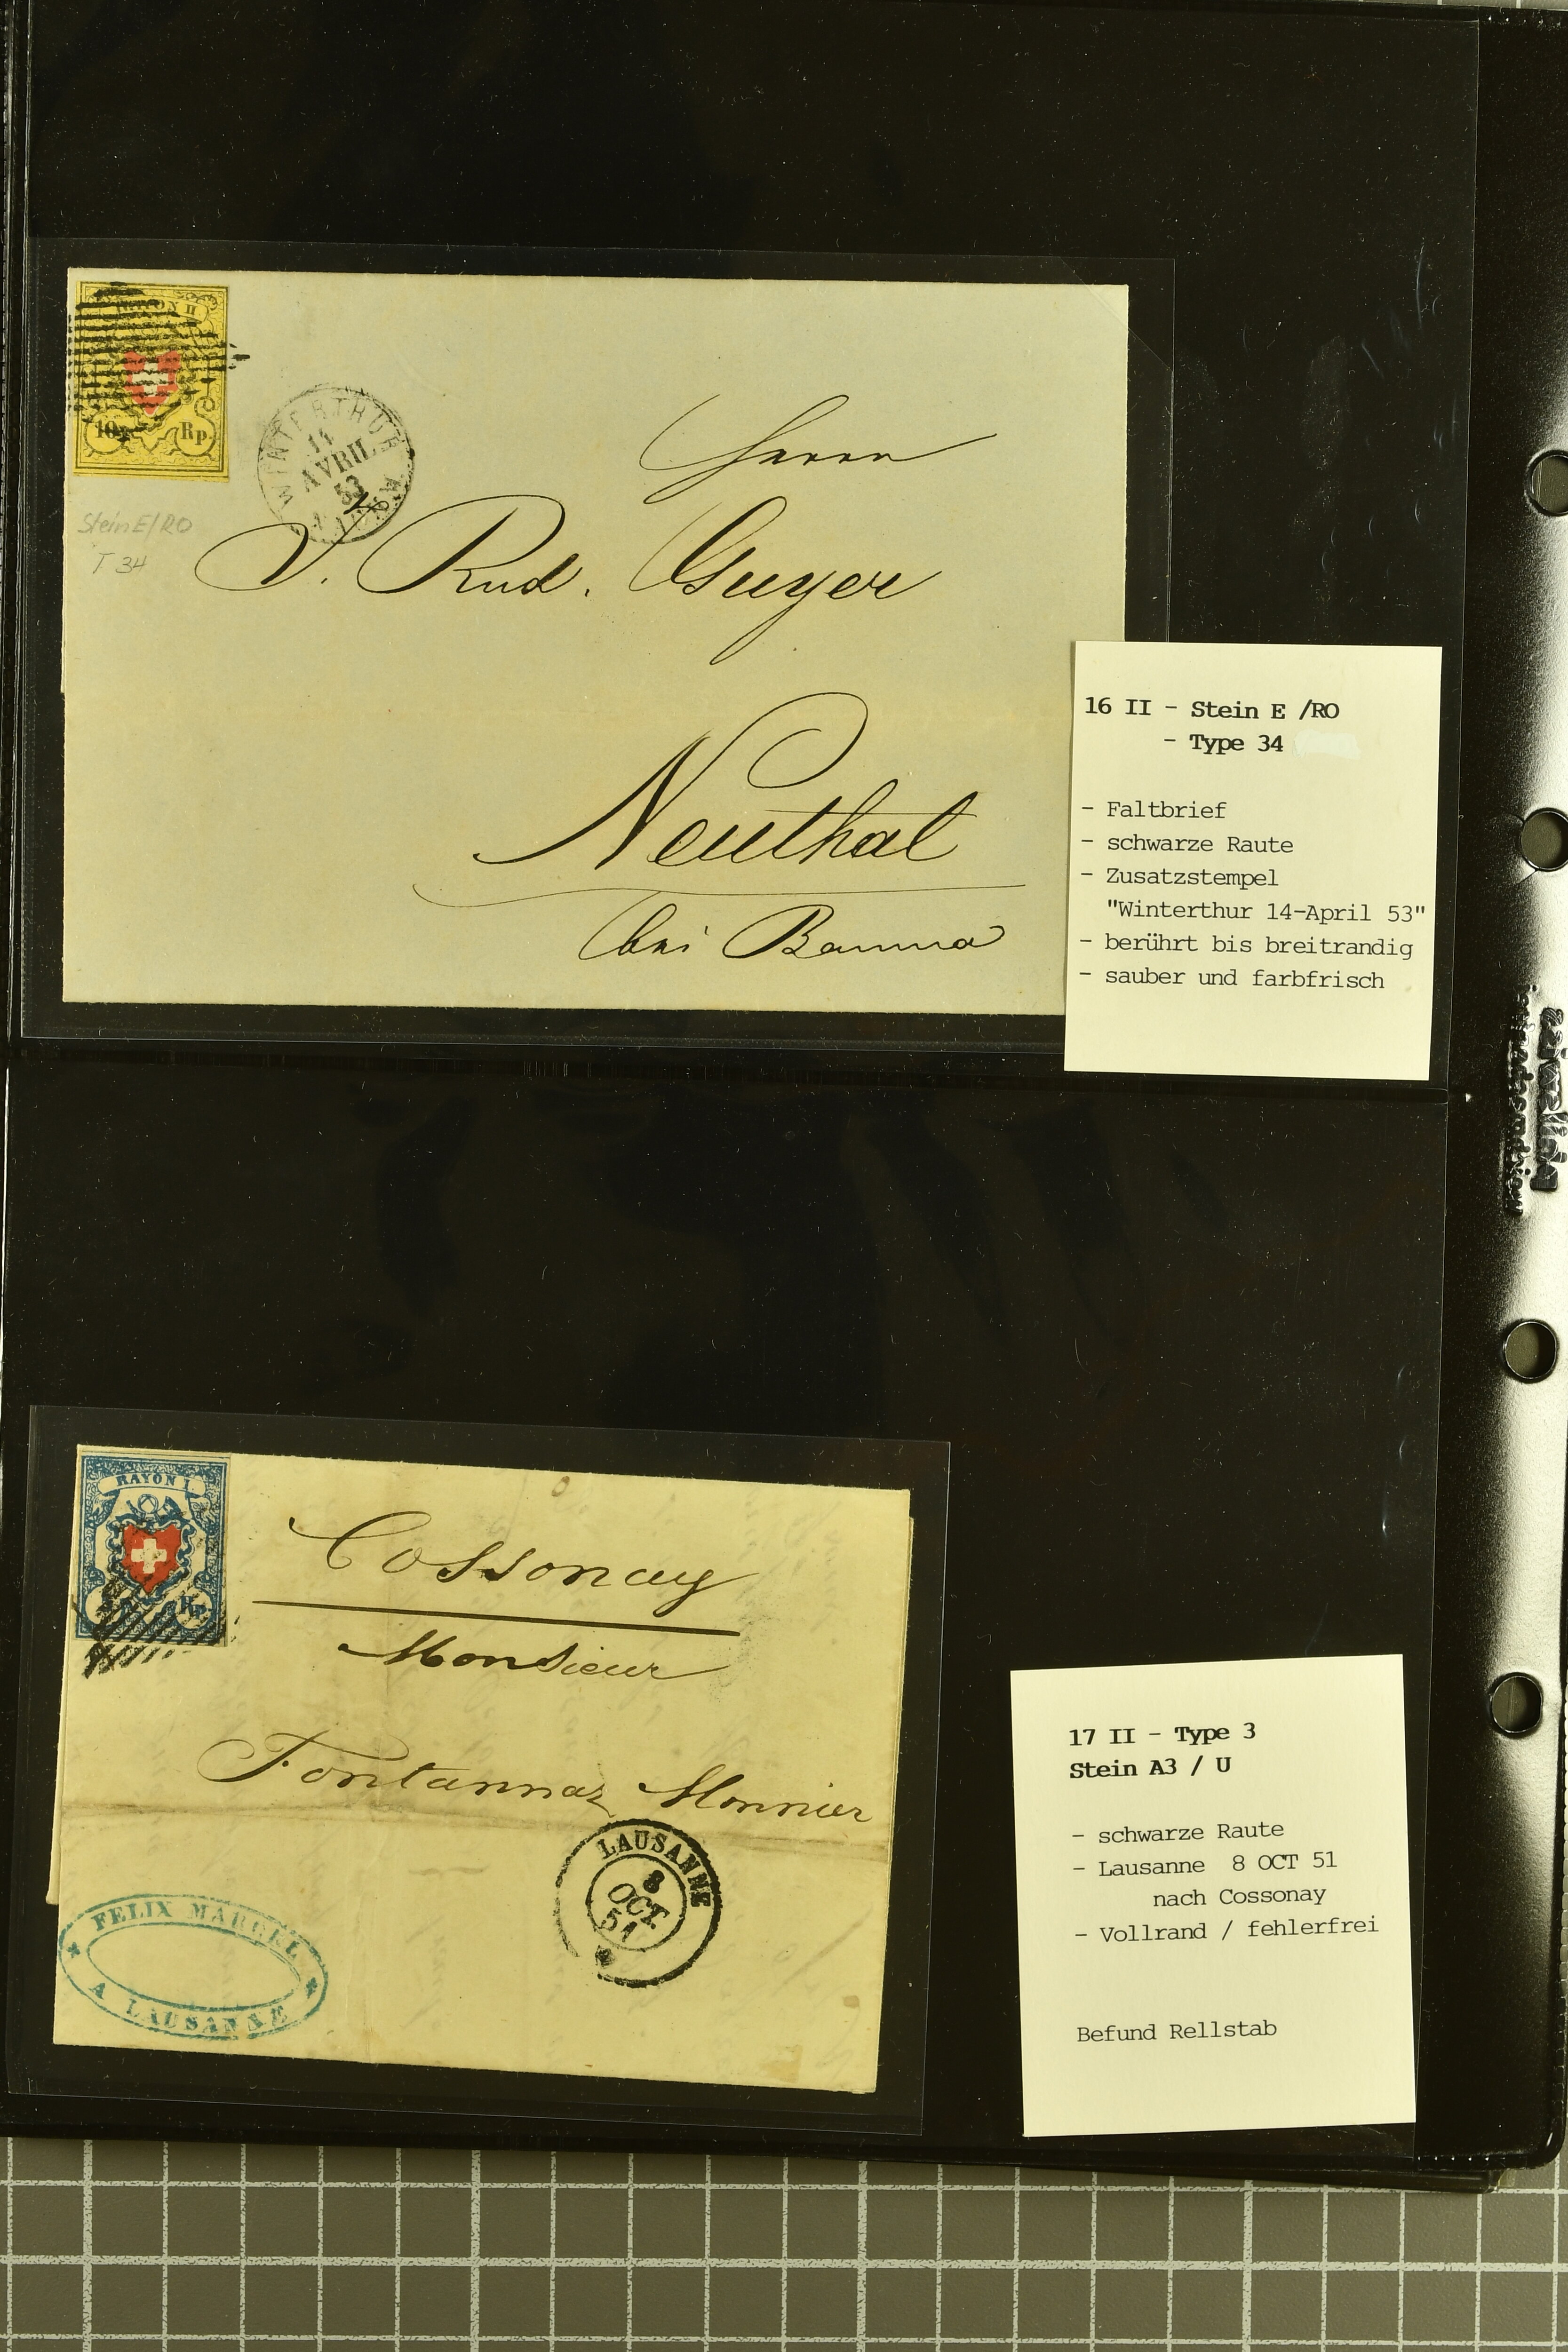 RAYON II
10 Rp.
WINTERTHUR
14
AVRIL
53
Stein E/RO
T 34
Herrn
J. Rud. Guyer
Neuthal
bei Bauma
16 II - Stein E /RO
- Type 34
- Faltbrief
- schwarze Raute
- Zusatzstempel
"Winterthur 14-April 53"
- berührt bis breitrandig
- sauber und farbfrisch
RAYON I
Rp.
Cossonay
Monsieur
Fontannaz Monnier
LAUSANNE
8
OCT
51
FELIX MARCEL
A LAUSANNE
17 II - Type 3
Stein A3 / U
- schwarze Raute
- Lausanne 8 OCT 51
nach Cossonay
- Vollrand / fehlerfrei
Befund Rellstab